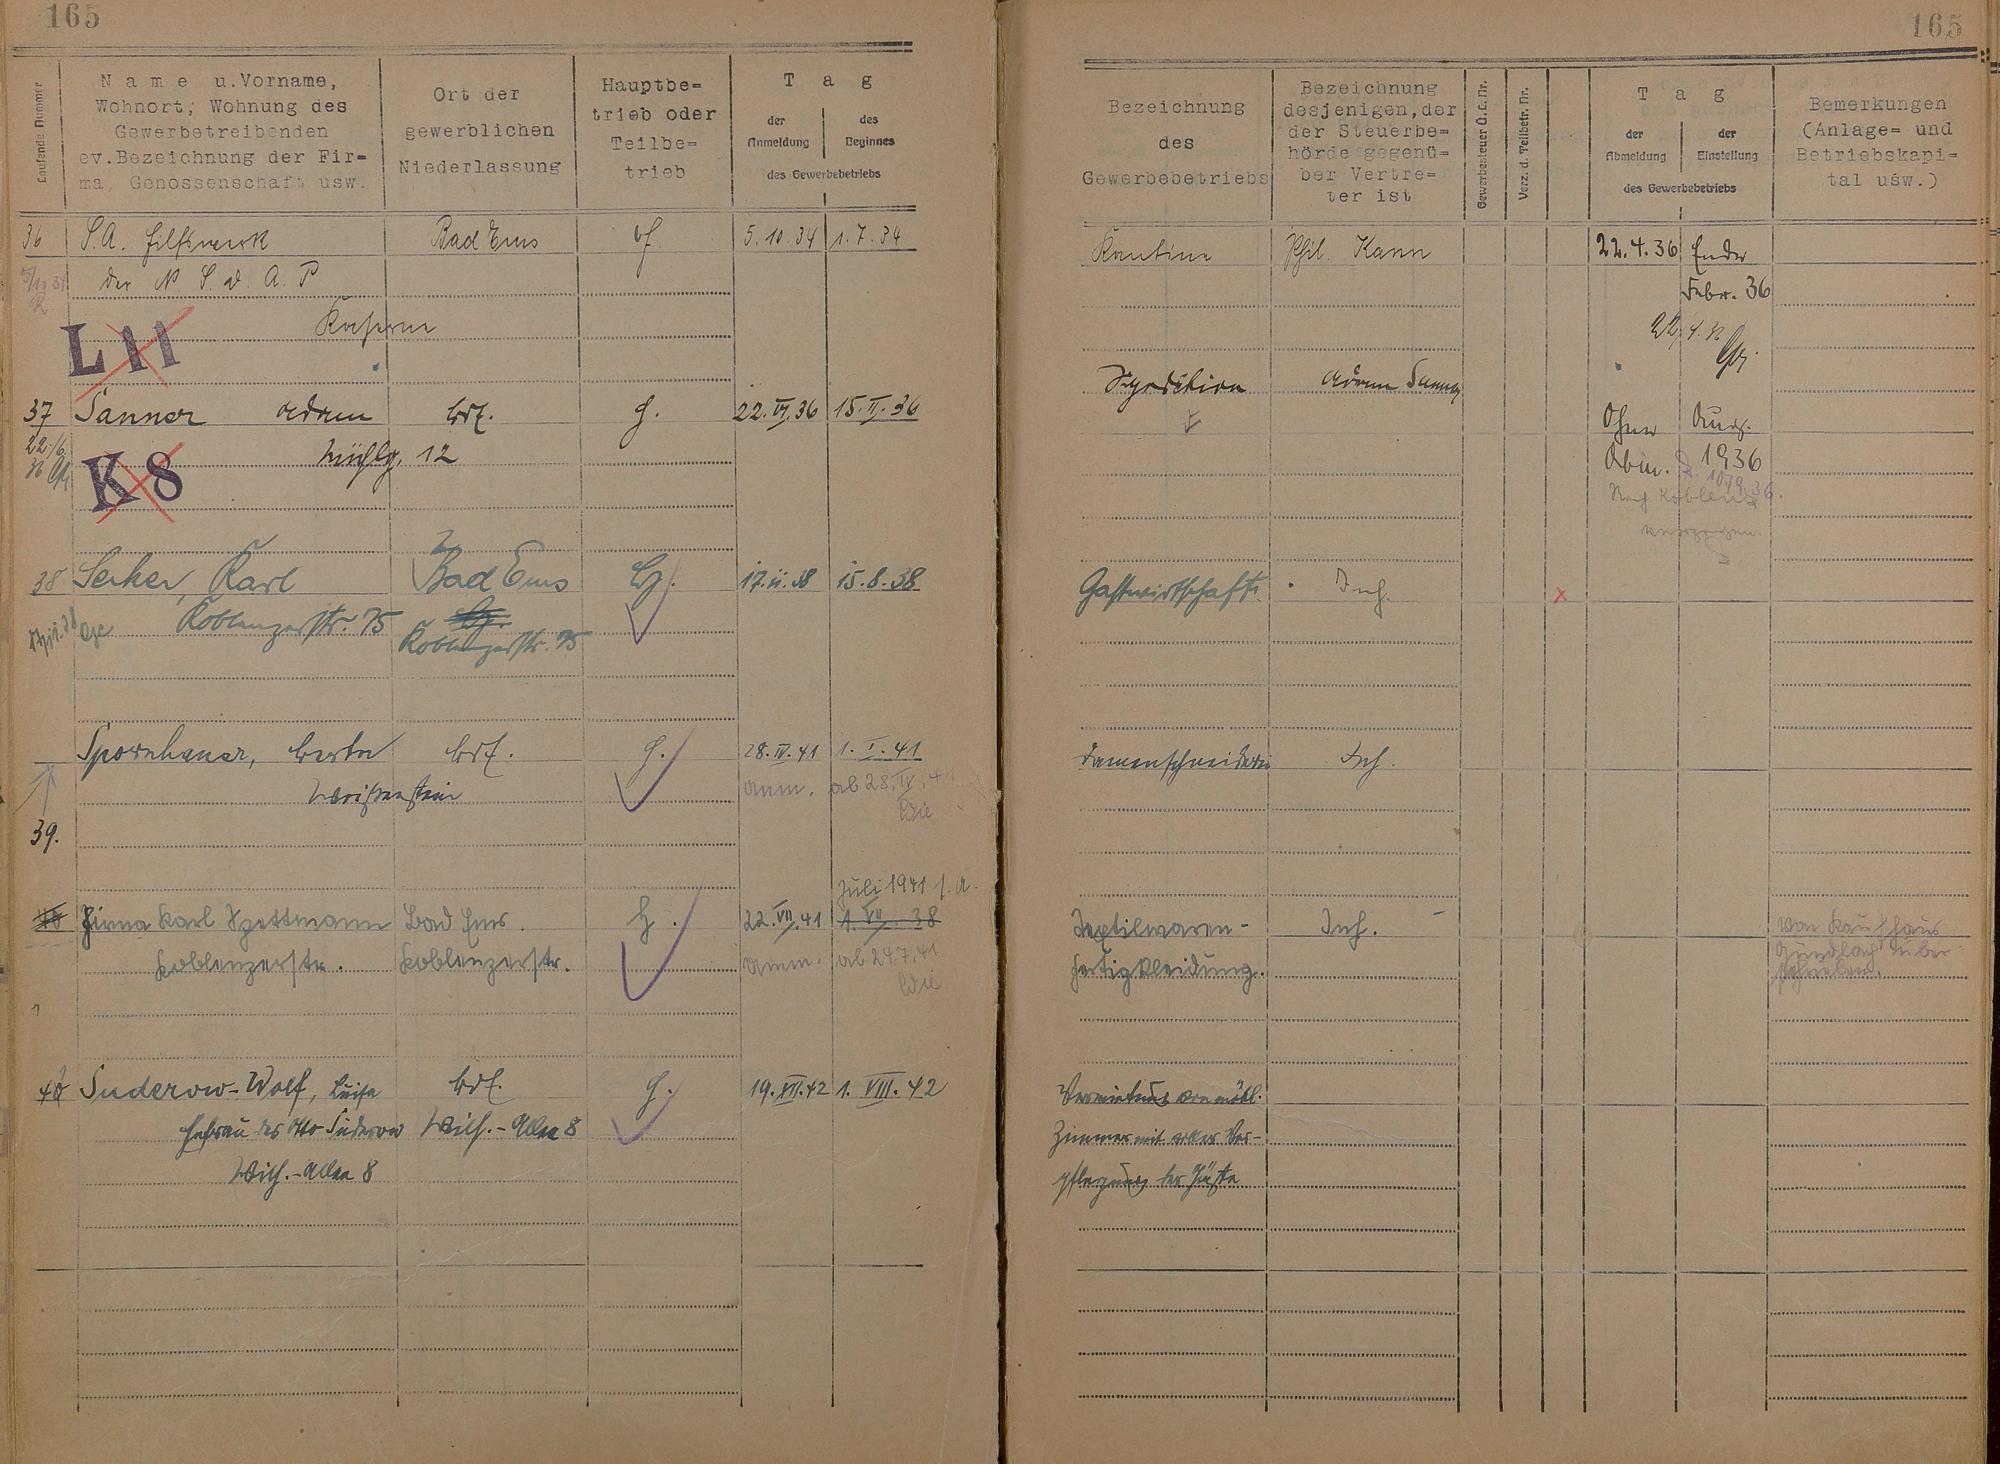 165
165
Laufende Nummer
Name u. Vorname,
Wohnort, Wohnung des
Gewerbetreibenden
ev. Bezeichnung der Fir=
ma, Genossenschaft usw.
Ort der
gewerblichen
Niederlassung
Hauptbe=
trieb oder
Teilbe=
trieb
Tag
der
Anmeldung
des
Beginnes
des Gewerbebetriebs
Bezeichnung
des
Gewerbebetriebs
Bezeichnung
desjenigen, der
der Steuerbe=
hörde gegenü=
ber Vertre=
ter ist
Gewerbesteuer Ü.L. Nr.
Verz. d. Teilbetr. Nr.
Tag
der
Abmeldung
der
Einstellung
des Gewerbebetriebs
Bemerkungen
(Anlage= und
Betriebskapi=
tal usw.)
36 S.A. Hilfswerk Bad Ems H. 5.10.34 1.7.34 Kantine Phil. Kann 22.4.36 Ende
der N S. d. A. P Febr. 36
Kaserne
L 11
37 Sanner Adam H. 22.VI.36 15.II.36 Spedition Adam Sanner
22./6. 12 Ohne Abm. 1936
36
K 8
Nach Koblenz
verzogen
38 Serker, Karl Bad Ems 17.11.38 15.8.38 Gastwirtschaft Inh. x
Koblenzerstr. 75 Koblenzerstr. 75
Spornhauer, Berta H. 28.IV.41 1.I.41 Damenschneiderin Inh.
Weißenstein anm. ab 28.IV.41
39.
Juli 1941
Firma Karl Spettmann Bad Ems. H. 22.VII.41 1.VII.38 Textilwaren- Inh. von Kaufhaus
Koblenzerstr. Koblenzerstr. anm. ab 24.7.41 Fertigkleidung.
40 Suderow-Wolf, Luise H. 19.XII.42 1.VIII.42 Vermietung von möbl.
Ehefrau des Otto Suderow Wilh.-Allee 8 Zimmer mit voller Ver-
Wilh.-Allee 8 pflegung der Gäste